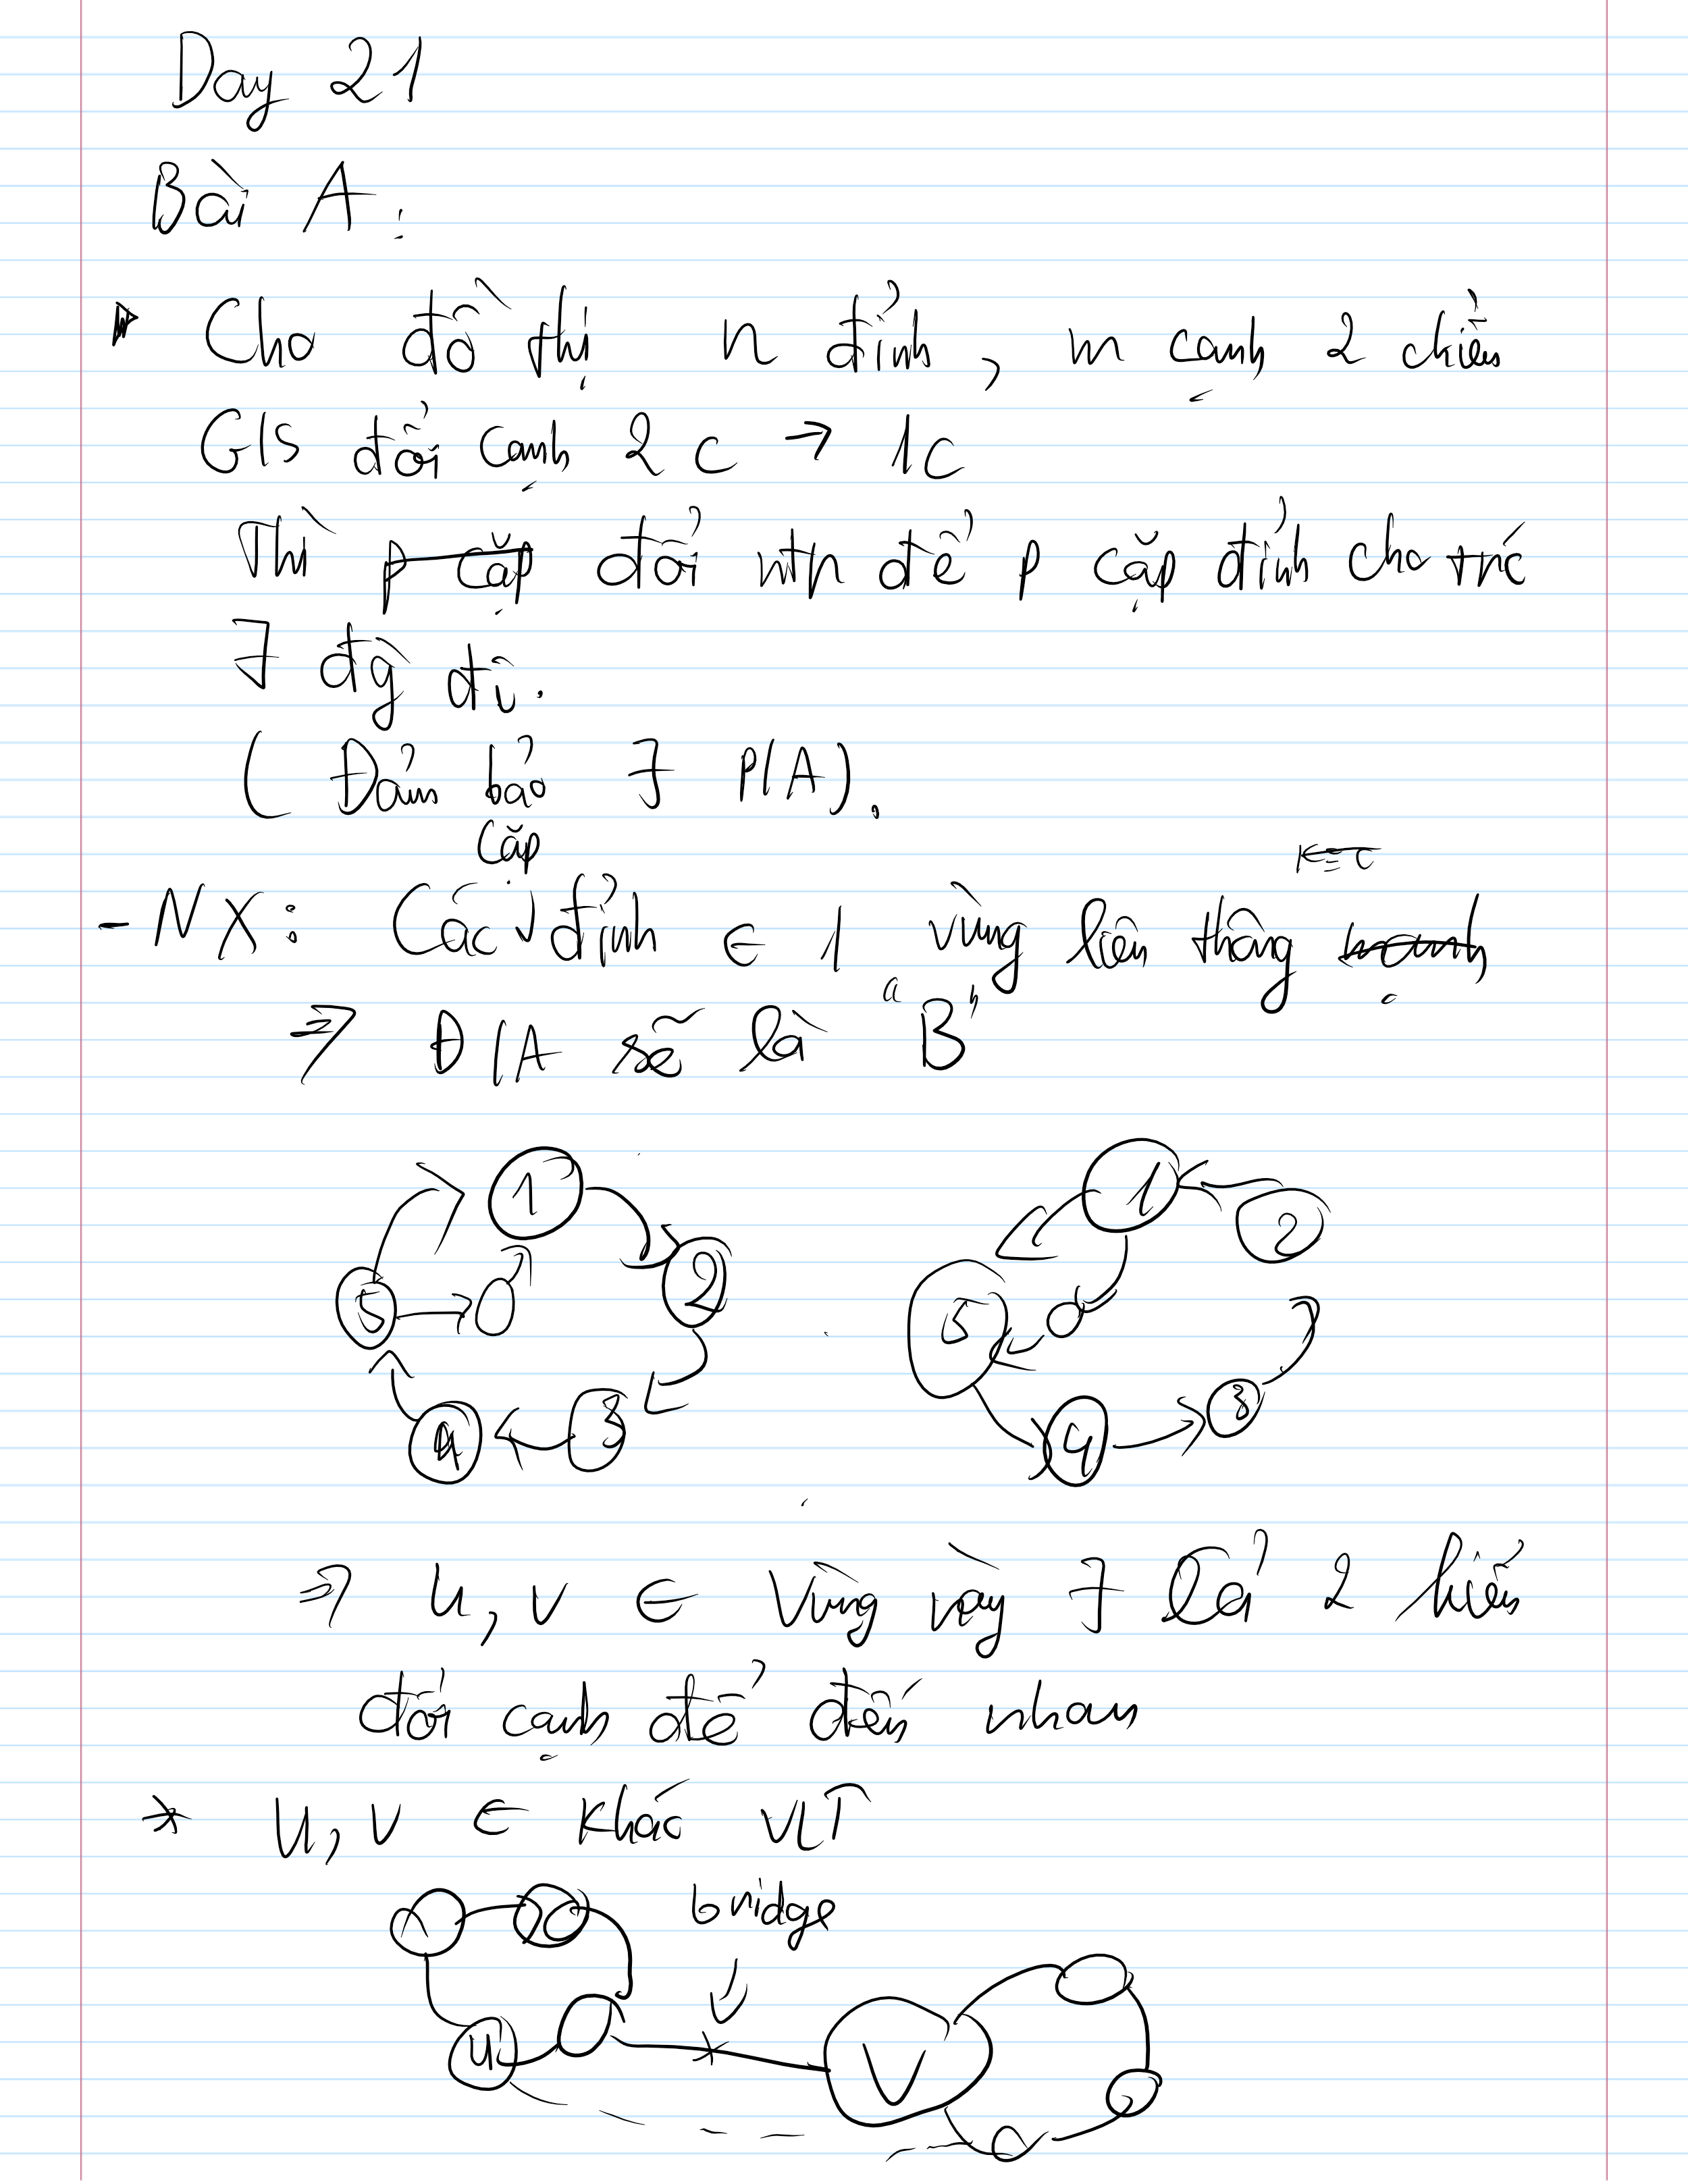 Day 21
Bài A:
Cho đồ thị n đỉnh, m cạnh 2 chiều
G/S đổi cạnh 2c → 1c
Thì p cặp đổi ntn để p cặp đỉnh cho trc
∃ đg đi.
( Đảm bảo ∃ P/A).
- NX: Các cặp đỉnh ∈ 1 vùng liên thông
⇒ Đ/A sẽ là "B"
1
2
3
4
5
1
2
5
4
3
⇒ u, v ∈ vùng này ∃ cả 2 kiểu
đổi cạnh để đến nhau
* u, v ∈ khác VLT
bridge
u
V